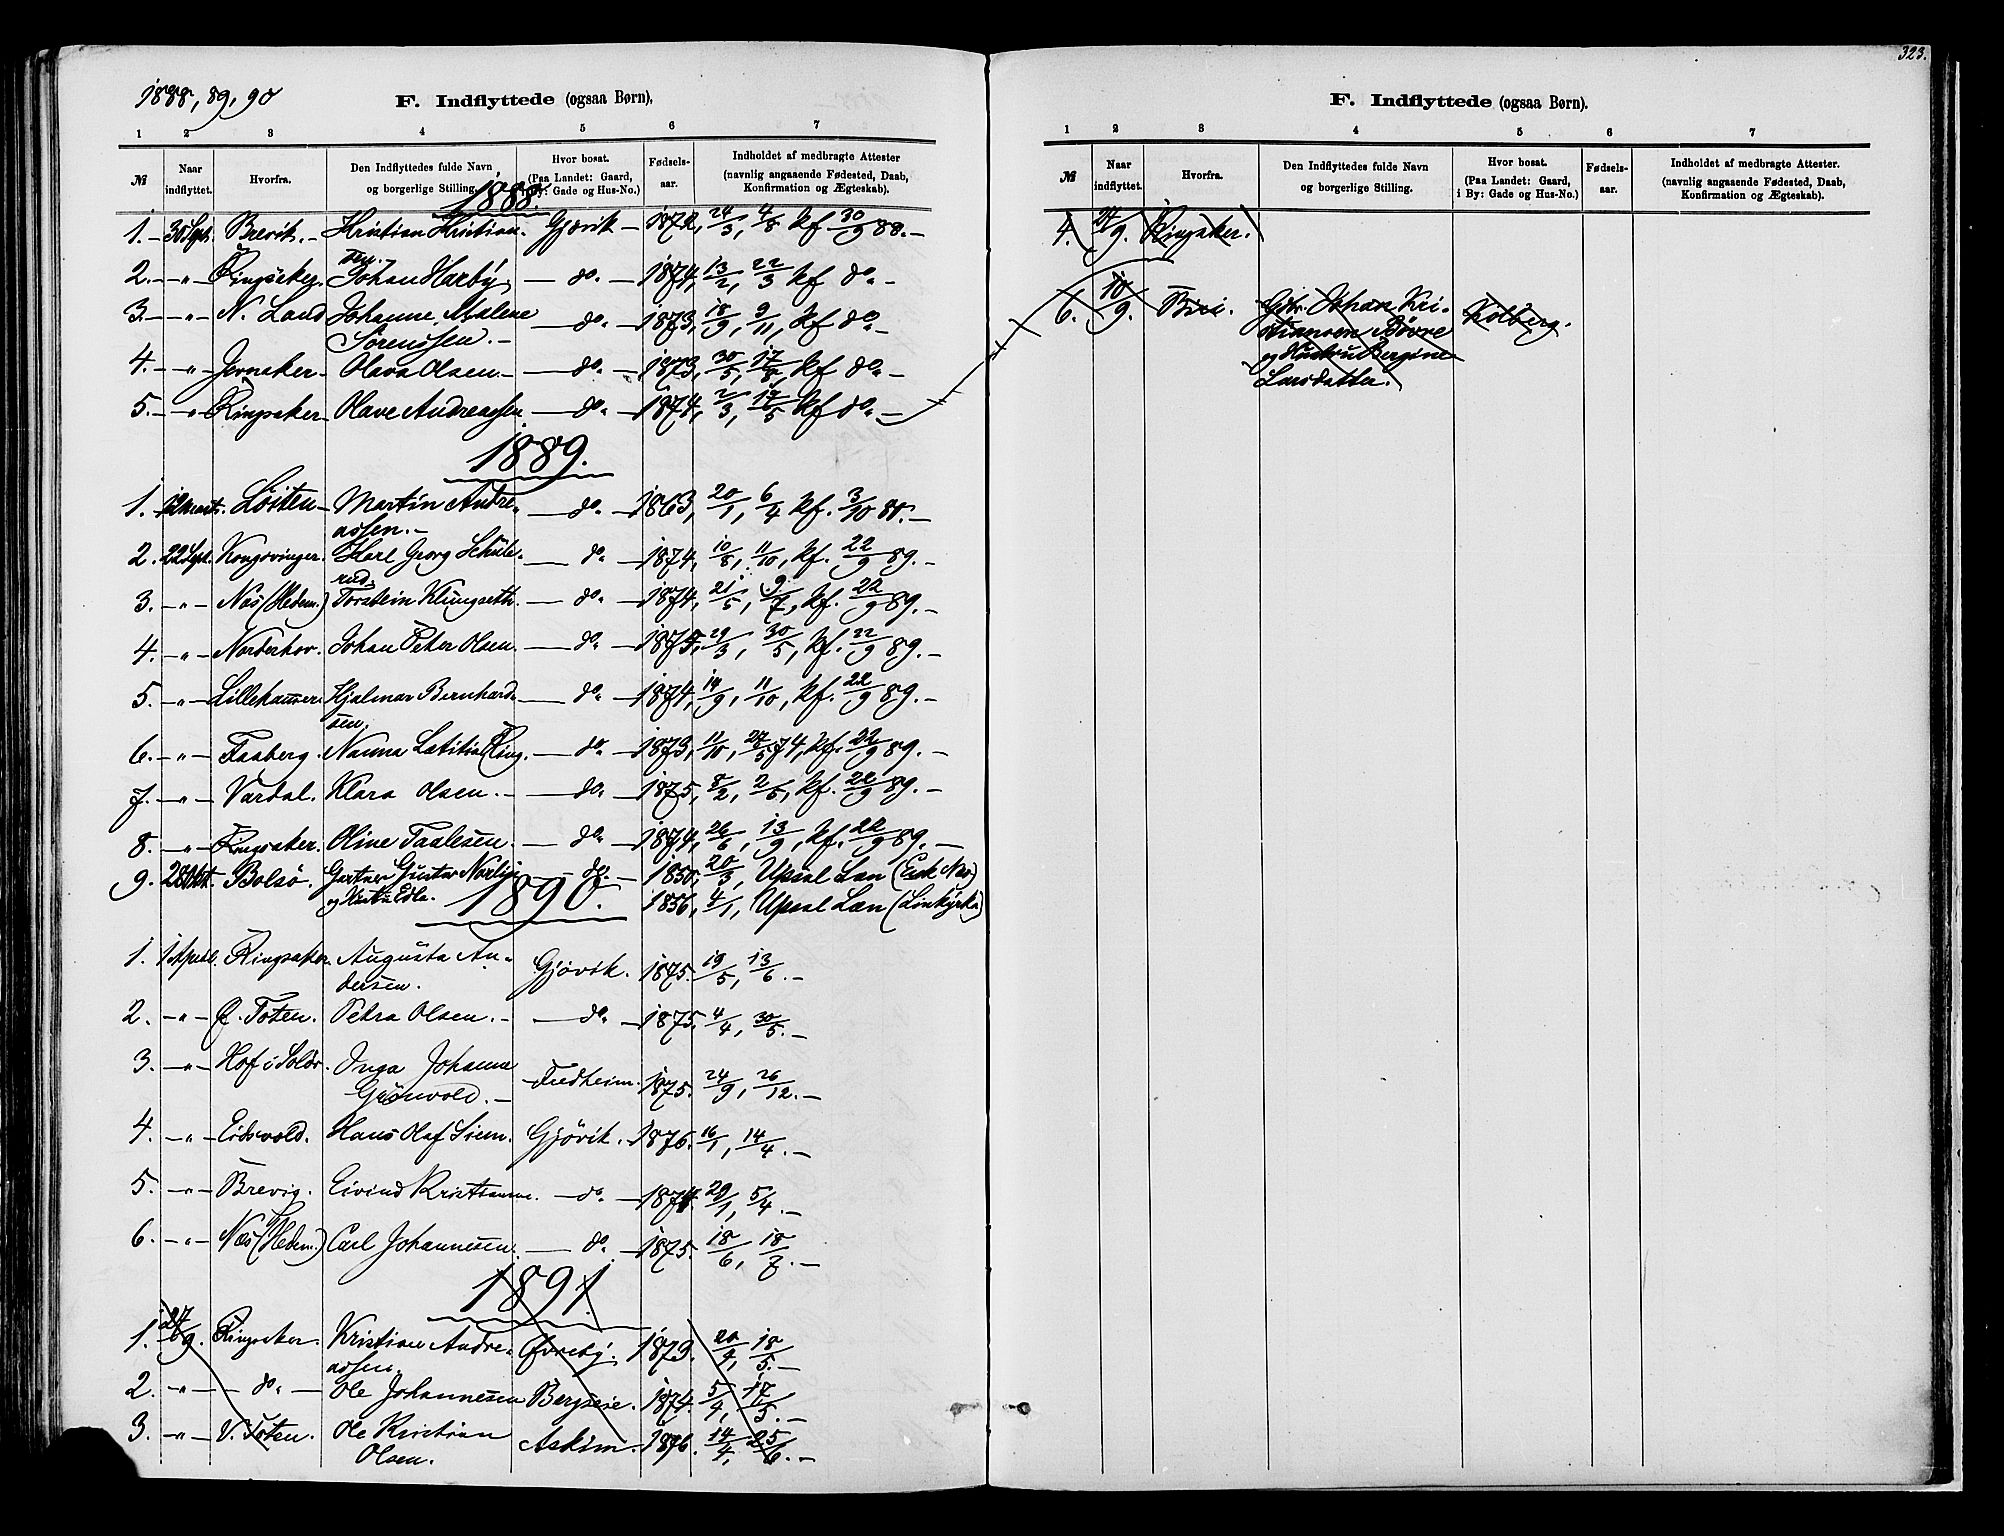 1888, 89, 90
F. Indflyttede (ogsaa Børn).
1 2 3 4 5 6 7
№ Naar indflyttet. Hvorfra. Den Indflyttedes fulde Navn og borgerlige Stilling. Hvor bosat. (Paa Landet: Gaard, i By: Gade og Hus-No.) Fødsels-aar. Indholdet af medbragte Attester (navnlig angaaende Fødested, Daab, Konfirmation og Ægteskab).
1888.
1. 30 Sept. Brevik. Kristian Kristian- Gjøvik 1872, 24/3, 4/8 kf. 30/9 88.
sen.
2. " Ringsaker. Johan Harby, do. 1874, 13/2, 22/3 kf do.
3. " N. Land Johanne Malene do. 1873, 18/9, 9/11, kf do.
Sørenssen.
4. " Jevnaker Olava Olsen do. 1873, 30/5, 17/8, kf do.
5. " Ringsaker Olave Andreassen do. 1874, 2/3, 17/5 kf do.
1889.
1. Løiten Martin Andre- do. 1863, 20/1, 6/4 kf. 3/10 80.
assen.
2. 22 Sept. Kongsvinger Karl Georg Schule- do. 1874, 10/8, 11/10, kf. 22/9 89.
rud.
3. " Næs (Hedem.) Torstein Klungseth do. 1874, 21/5, 9/7, kf. 22/9 89.
4. " Norderhov. Johan Peter Olsen. do. 1875, 29/3, 30/5, kf. 22/9 89.
5. " Lillehammer Hjalmar Bernhard- do. 1874, 14/9, 11/10, kf. 22/9 89.
sen.
6. " Faaberg. Nanna Lætitia Ring. do. 1873, 11/10, 24/5 74, kf. 22/9 89.
7. " Vardal. Klara Olsen. do. 1875, 8/2, 2/5, kf. 22/9 89.
8. " Ringsaker. Oline Taalesen. do. 1874, 26/6, 13/9, kf. 22/9 89.
9. 28 Okt. Bolsø. Gartner Gustav Norling do. 1850, 20/3, Upsal Læn
og Hustru Edla. 1856, 4/1, Upsal Læn
1890.
1. 1 April. Ringsaker. Augusta An- Gjøvik. 1875. 19/5, 13/6.
dersen.
2. " Ø. Toten. Petra Olsen. do. 1875. 4/4, 30/5.
3. " Hof i Solør. Inga Johanna Fredheim. 1875. 24/9, 26/12.
Grønvold.
4. " Eidsvold. Hans Olaf Siem. Gjøvik. 1876. 16/1, 14/4.
5. " Brevig. Eivind Kristiansen. do. 1874. 29/1, 5/4.
6. " Næs (Hedem.) Carl Johannesen. do. 1875. 18/6, 18/7.
1891.
1. 27/9. Ringsaker. Kristian Andre- Øvreby. 1873. 20/4, 18/5.
assen.
2. " do. Ole Johannesen Bergseie. 1874. 5/4, 17/5.
3. " V. Toten. Ole Kristian Askim. 1876. 14/4, 25/6.
Olsen.
323.
F. Indflyttede (ogsaa Børn).
1 2 3 4 5 6 7
№ Naar indflyttet. Hvorfra. Den Indflyttedes fulde Navn og borgerlige Stilling. Hvor bosat. (Paa Landet: Gaard, i By: Gade og Hus-No.) Fødsels-aar. Indholdet af medbragte Attester. (navnlig angaaende Fødested, Daab, Konfirmation og Ægteskab).
4. 27/9. Ringsaker.
6. 10/9. Biri. Gdbr. Johan Kri- Kolberg.
stiansen Bøvre
og Hustru Bergine
Larsdatter.